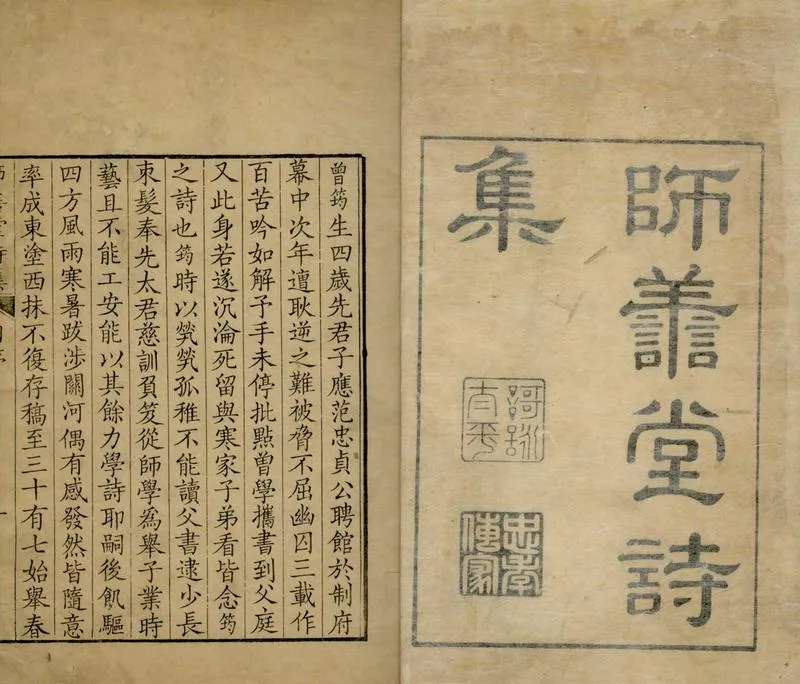 師譱堂詩
集
太平
忠孝
傳家
曾筠生四歲先君子應范忠貞公聘館於制府
幕中次年遭耿逆之難被脅不屈幽囚三載作
百苦吟如解予手未停批點曾學攜書到父庭
又此身若遂沉淪死留與寒家子弟看皆念筠
之詩也筠時以煢煢孤稚不能讀父書逮少長
束髮奉先太君慈訓負笈從師學爲舉子業時
藝且不能工安能以其餘力學詩耶嗣後飢驅
四方風雨寒暑跋涉關河偶有感發然皆隨意
率成東塗西抹不復存稿至三十有七始舉春